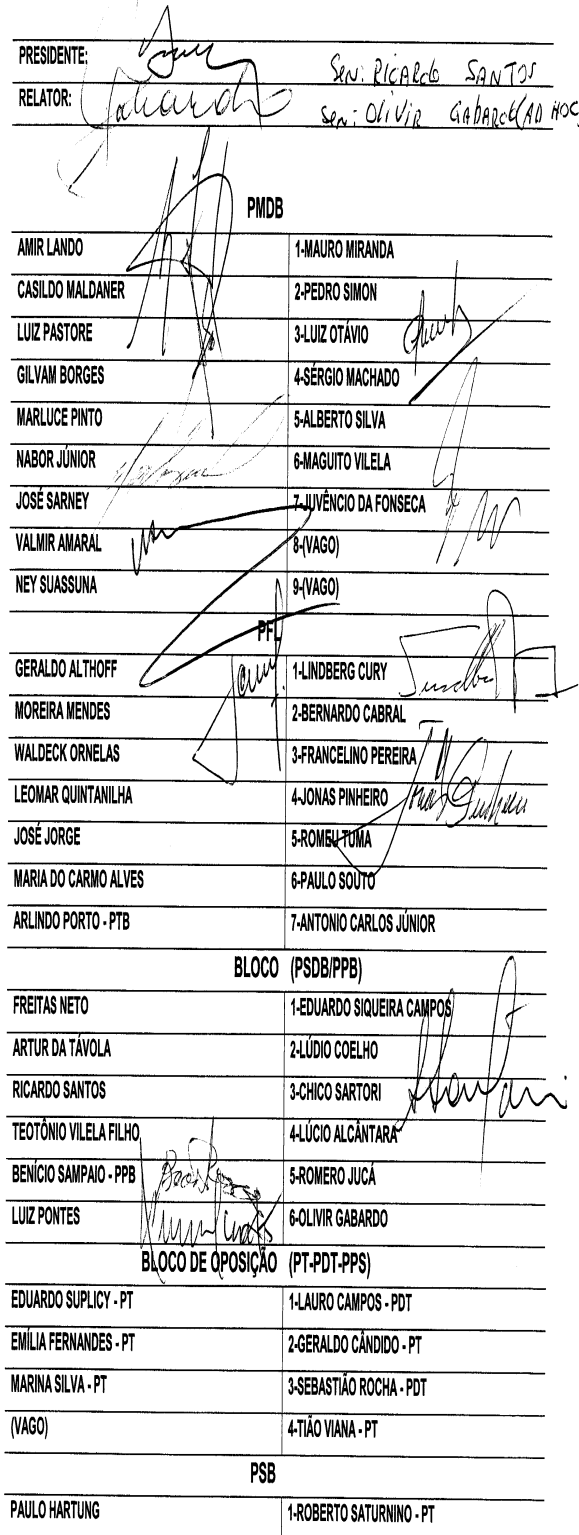 PRESIDENTE: Sen: RICARDO SANTOS
RELATOR: Sen: OLIVIR GABARDO (AD HOC)
PMDB
AMIR LANDO 1-MAURO MIRANDA
CASILDO MALDANER 2-PEDRO SIMON
LUIZ PASTORE 3-LUIZ OTÁVIO
GILVAM BORGES 4-SÉRGIO MACHADO
MARLUCE PINTO 5-ALBERTO SILVA
NABOR JÚNIOR 6-MAGUITO VILELA
JOSÉ SARNEY 7-JUVÊNCIO DA FONSECA
VALMIR AMARAL 8-(VAGO)
NEY SUASSUNA 9-(VAGO)
PFL
GERALDO ALTHOFF 1-LINDBERG CURY
MOREIRA MENDES 2-BERNARDO CABRAL
WALDECK ORNELAS 3-FRANCELINO PEREIRA
LEOMAR QUINTANILHA 4-JONAS PINHEIRO
JOSÉ JORGE 5-ROMEU TUMA
MARIA DO CARMO ALVES 6-PAULO SOUTO
ARLINDO PORTO - PTB 7-ANTONIO CARLOS JÚNIOR
BLOCO (PSDB/PPB)
FREITAS NETO 1-EDUARDO SIQUEIRA CAMPOS
ARTUR DA TÁVOLA 2-LÚDIO COELHO
RICARDO SANTOS 3-CHICO SARTORI
TEOTÔNIO VILELA FILHO 4-LÚCIO ALCÂNTARA
BENÍCIO SAMPAIO - PPB 5-ROMERO JUCÁ
LUIZ PONTES 6-OLIVIR GABARDO
BLOCO DE OPOSIÇÃO (PT-PDT-PPS)
EDUARDO SUPLICY - PT 1-LAURO CAMPOS - PDT
EMÍLIA FERNANDES - PT 2-GERALDO CÂNDIDO - PT
MARINA SILVA - PT 3-SEBASTIÃO ROCHA - PDT
(VAGO) 4-TIÃO VIANA - PT
PSB
PAULO HARTUNG 1-ROBERTO SATURNINO - PT